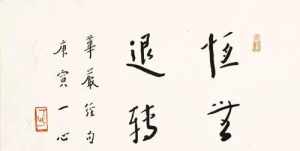 恒无
退轉
華嚴經句
庚寅一心